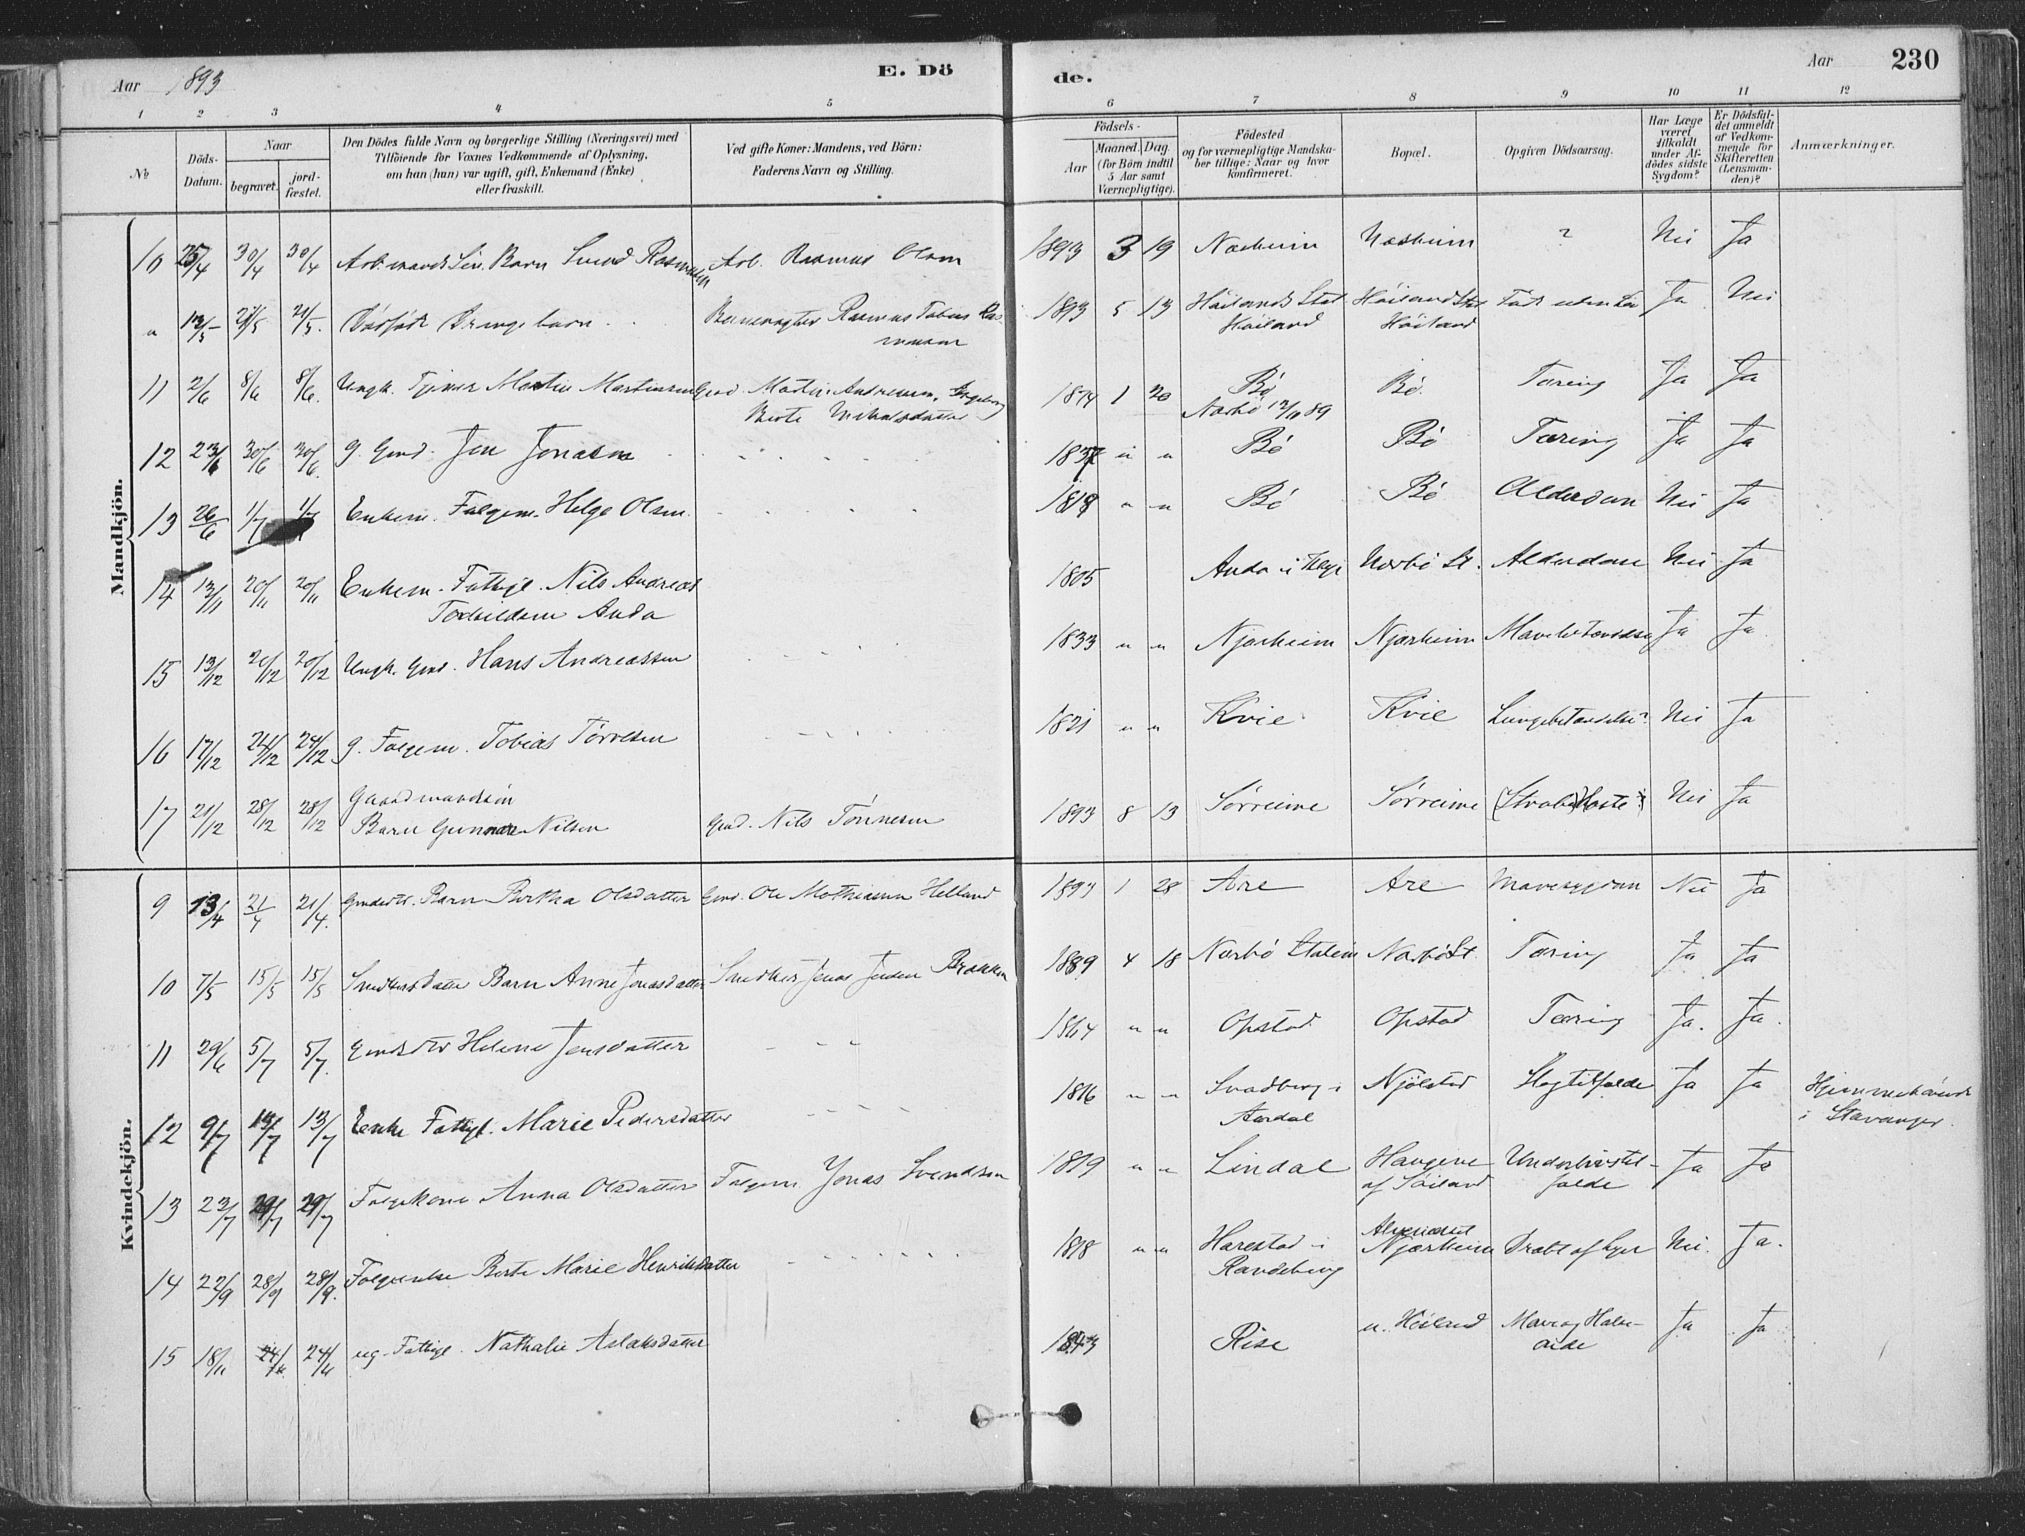 Aar 1893
E. Dö
de.
Aar
230
1 2 3 4 5 6 7 8 9 10 11 12
No
Döds-
Datum.
Naar
begravet.
jord-
fæstet.
Den Dödes fulde Navn og borgerlige Stilling (Næringsvei) med
Tilföiende for Voxnes Vedkommende af Oplysning,
om han (hun) var ugift, gift, Enkemand (Enke)
eller fraskilt.
Ved gifte Koner: Mandens, ved Börn:
Faderens Navn og Stilling.
Födsels-
Aar
Maaned. Dag.
(for Börn indtil
5 Aar samt
Værnepligtige).
Födested
og for værnepligtige Mandska-
ber tillige: Naar og hvor
konfirmeret.
Bopæl.
Opgiven Dödsaarsag.
Har Læge
været
tilkaldt
under Af-
dödes sidste
Sygdom?
Er Dödsfal-
det anmeldt
af Vedkom-
mende for
Skifteretten
(Lensman-
den)?
Anmærkninger.
Mandkjön.
10 25/4 30/4 30/4 Arb.mands Barn Svend Rasmussen Arb. Rasmus Olsen 1893 3 19 Næsheim Næsheim ? Nei Ja
" 13/5 21/5 21/5. Dödfödt Drengebarn Banevogter Rasmus Tobias Ras-
mussen
1893 5 13 Höilands Stat Höiland St Född uden Liv Ja Nei
Höiland Höiland
11 2/6 8/6 8/6. Ungk. Tjener Martin Martinsen Gmd. Martin Andreassen, Ingeborg
Berte
1874 1 20 Bö Bö. Tæring Ja Ja
Nærbö 12/11 89
12 23/6 30/6 30/6. g. Gmd. Jon Jonasen 1837 " " Bö Bö Tæring Ja Ja
13 26/6 1/7 1/7 Enkem. Folgem. Helge Olsen 1818 " " Bö Bö Alderdom Nei Ja
14 13/11 20/11 20/11 Enkem. Fattigl. Nils Andreas
Torkildsen Anda
1805 Anda i Klep Nærbö St. Alderdom Nei Ja
15 13/12 20/12 20/12 Ungk. Gmd. Hans Andreassen 1833 " " Njærheim Njærheim Mavebetændelse Ja Ja
16 17/12 24/12 24/12 g. Folgem. Tobias Törresen 1821 " " Kvie Kvie Lungebetændelse? Nei Ja
17 21/12 28/12 28/12 Gaardmandssön
Barn Gunnar Nilsen Gmd. Nils Tönnesen 1893 8 13 Sörreime Sörreime (Strubehoste?) Nei Ja
Kvindekjön.
9 13/4 21/4 21/4. Gmdsdtr. Barn Bertha Olsdatter Gmd. Ole Mathiasen Helland 1893 1 28 Are Are Mavesygdom Nei Ja
10 7/5 15/5 15/5 Snedkersdatter Barn Anne Jonasdatter Snedker Jonas Brekken 1889 4 18 Nærbö Station Nærbö St. Tæring Ja Ja
11 29/6 5/7 5/7. Gmdsdtr Helene Jensdatter 1864 " " Opstad Opstad Tæring Ja. Ja.
12 9/7 13/7 13/7 Enke Fattigl. Marie Pedersdatter 1816 " " Svadberg i Njølstad Slagtilfælde Ja Ja Hjemmehörende
Aardal i Stavanger.
13 22/7 29/7 29/7 Folgekone Anna Olsdatter Folgem. Jonas Svendsen 1819 " " Lindal Haugene Underlivstil- Ja Ja
af Höiland fælde
14 22/9 28/9 28/9. Folgeenke Berte Marie Henriksdatter 1818 " " Harestad i Njærheim Dræbt af Nei. Ja.
Randeberg
15 18/11 24/11 24/11 ug. Fattigl. Nathalie Aslaksdatter 1843 Rise n. Höiland Mave og Hals- Ja Ja
onde